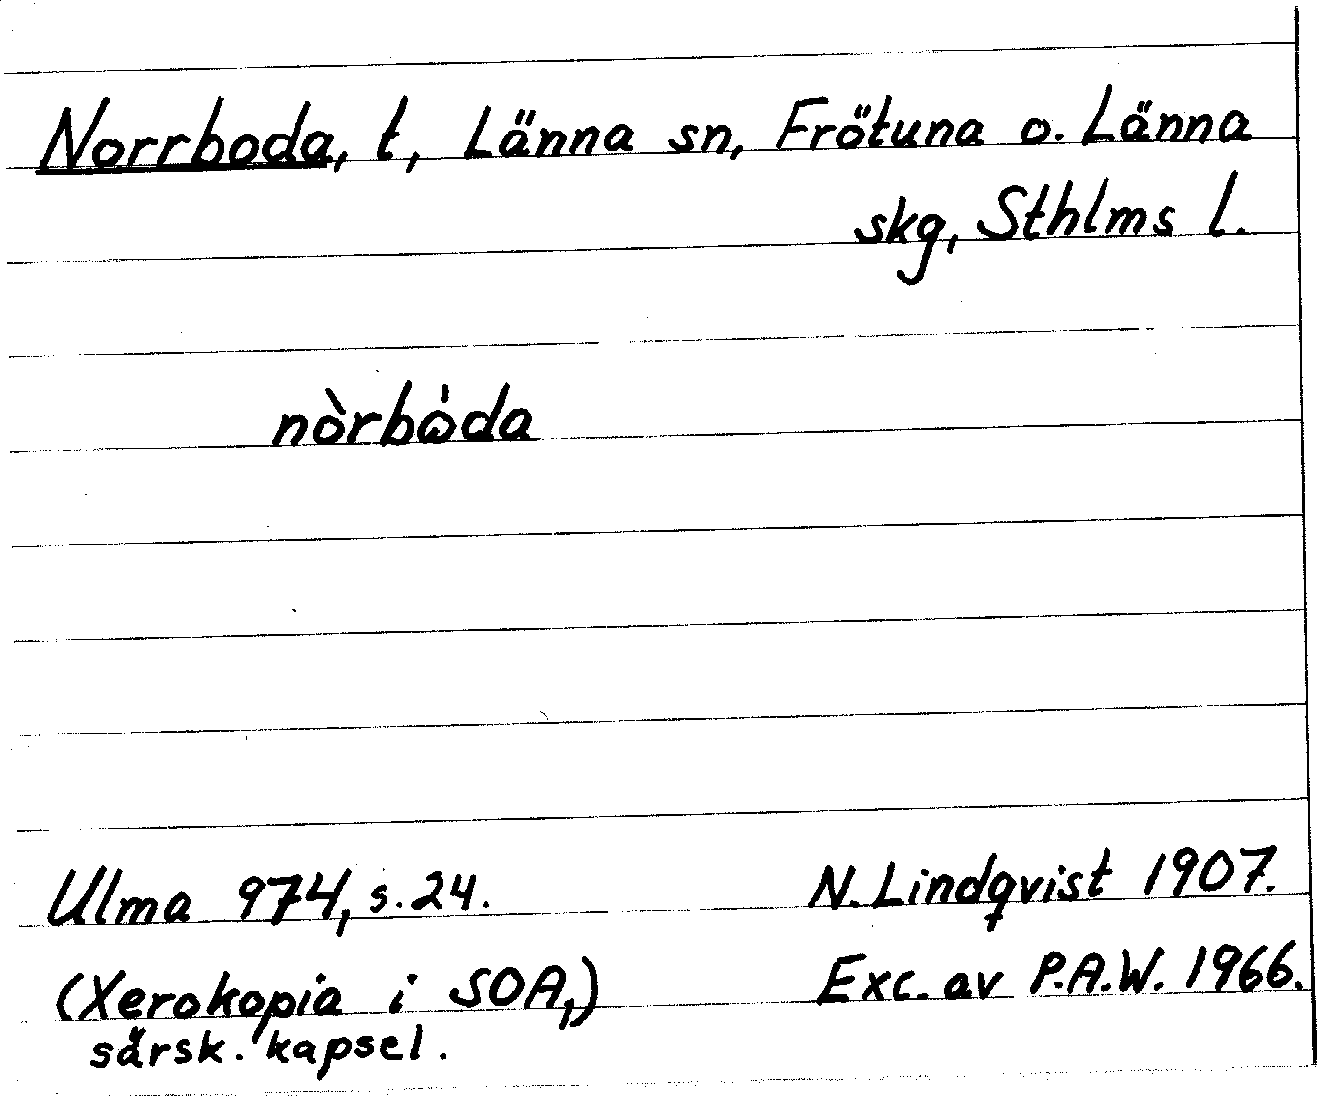 Norrboda, t, Länna sn, Frötuna o. Länna
skg, Sthlms l.
nòrbω̇da
Ulma 974, s. 24. N. Lindqvist 1907.
(Xerokopia i SOA,) Exc. av P.A.W. 1966.
särsk. kapsel.